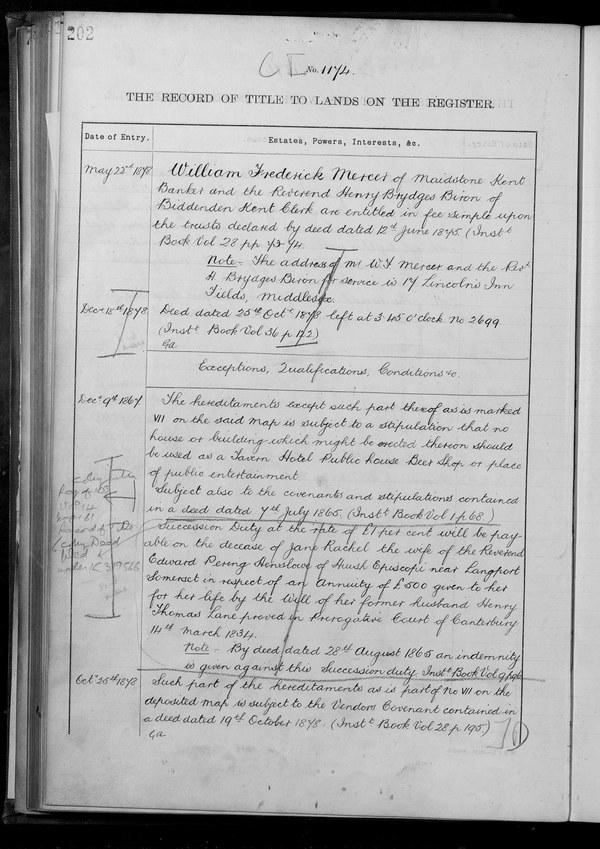 202
CT No. 1174.
THE RECORD OF TITLE TO LANDS ON THE REGISTER.
Date of Entry.
Estates, Powers, Interests, &c.
May 22nd 1878
William Frederick Mercer of Maidstone Kent
Banker and the Reverend Henry Brydges Biron of
Biddenden Kent Clerk are entitled in fee simple upon
the trusts declared by deed dated 12th June 1875. (Instt
Book Vol 28 pp 73-74.
Note - The address of Mr W F Mercer and the Revd
H. Brydges Biron for service is 17 Lincolns Inn
Fields, Middlesex.
Decr 18th 1878
Deed dated 25th Octr 1878 left at 3.45 o'clock No 2699
(Instt Book Vol 36 p 172)
Ga
Exceptions, Qualifications, Conditions &c.
Decr 9th 1867
The hereditaments except such part thereof as is marked
VII on the said map is subject to a stipulation that no
house or building which might be erected thereon should
be used as a Tavern Hotel Public house Beer Shop or place
of public entertainment
Subject also to the covenants and stipulations contained
in a deed dated 7th July 1865. (Instt Book Vol 1 p 68.)
Succession Duty at the rate of £1 per cent will be pay-
able on the decease of Jane Rachel the wife of the Reverend
Edward Pering Henslowe of Huish Episcopi near Langport
Somerset in respect of an Annuity of £500 given to her
for her life by the Will of her former husband Henry
Thomas Lane proved in Prerogative Court of Canterbury
14th March 1834.
Note - By deed dated 28th August 1865 an indemnity
is given against this Succession duty. Instt Book Vol 9 p 96
Octr 25th 1878
Such part of the hereditaments as is part of No VII on the
deposited map is subject to the Vendors Covenant contained in
a deed dated 19th October 1878. (Instt Book Vol 28 p 195)
Ga